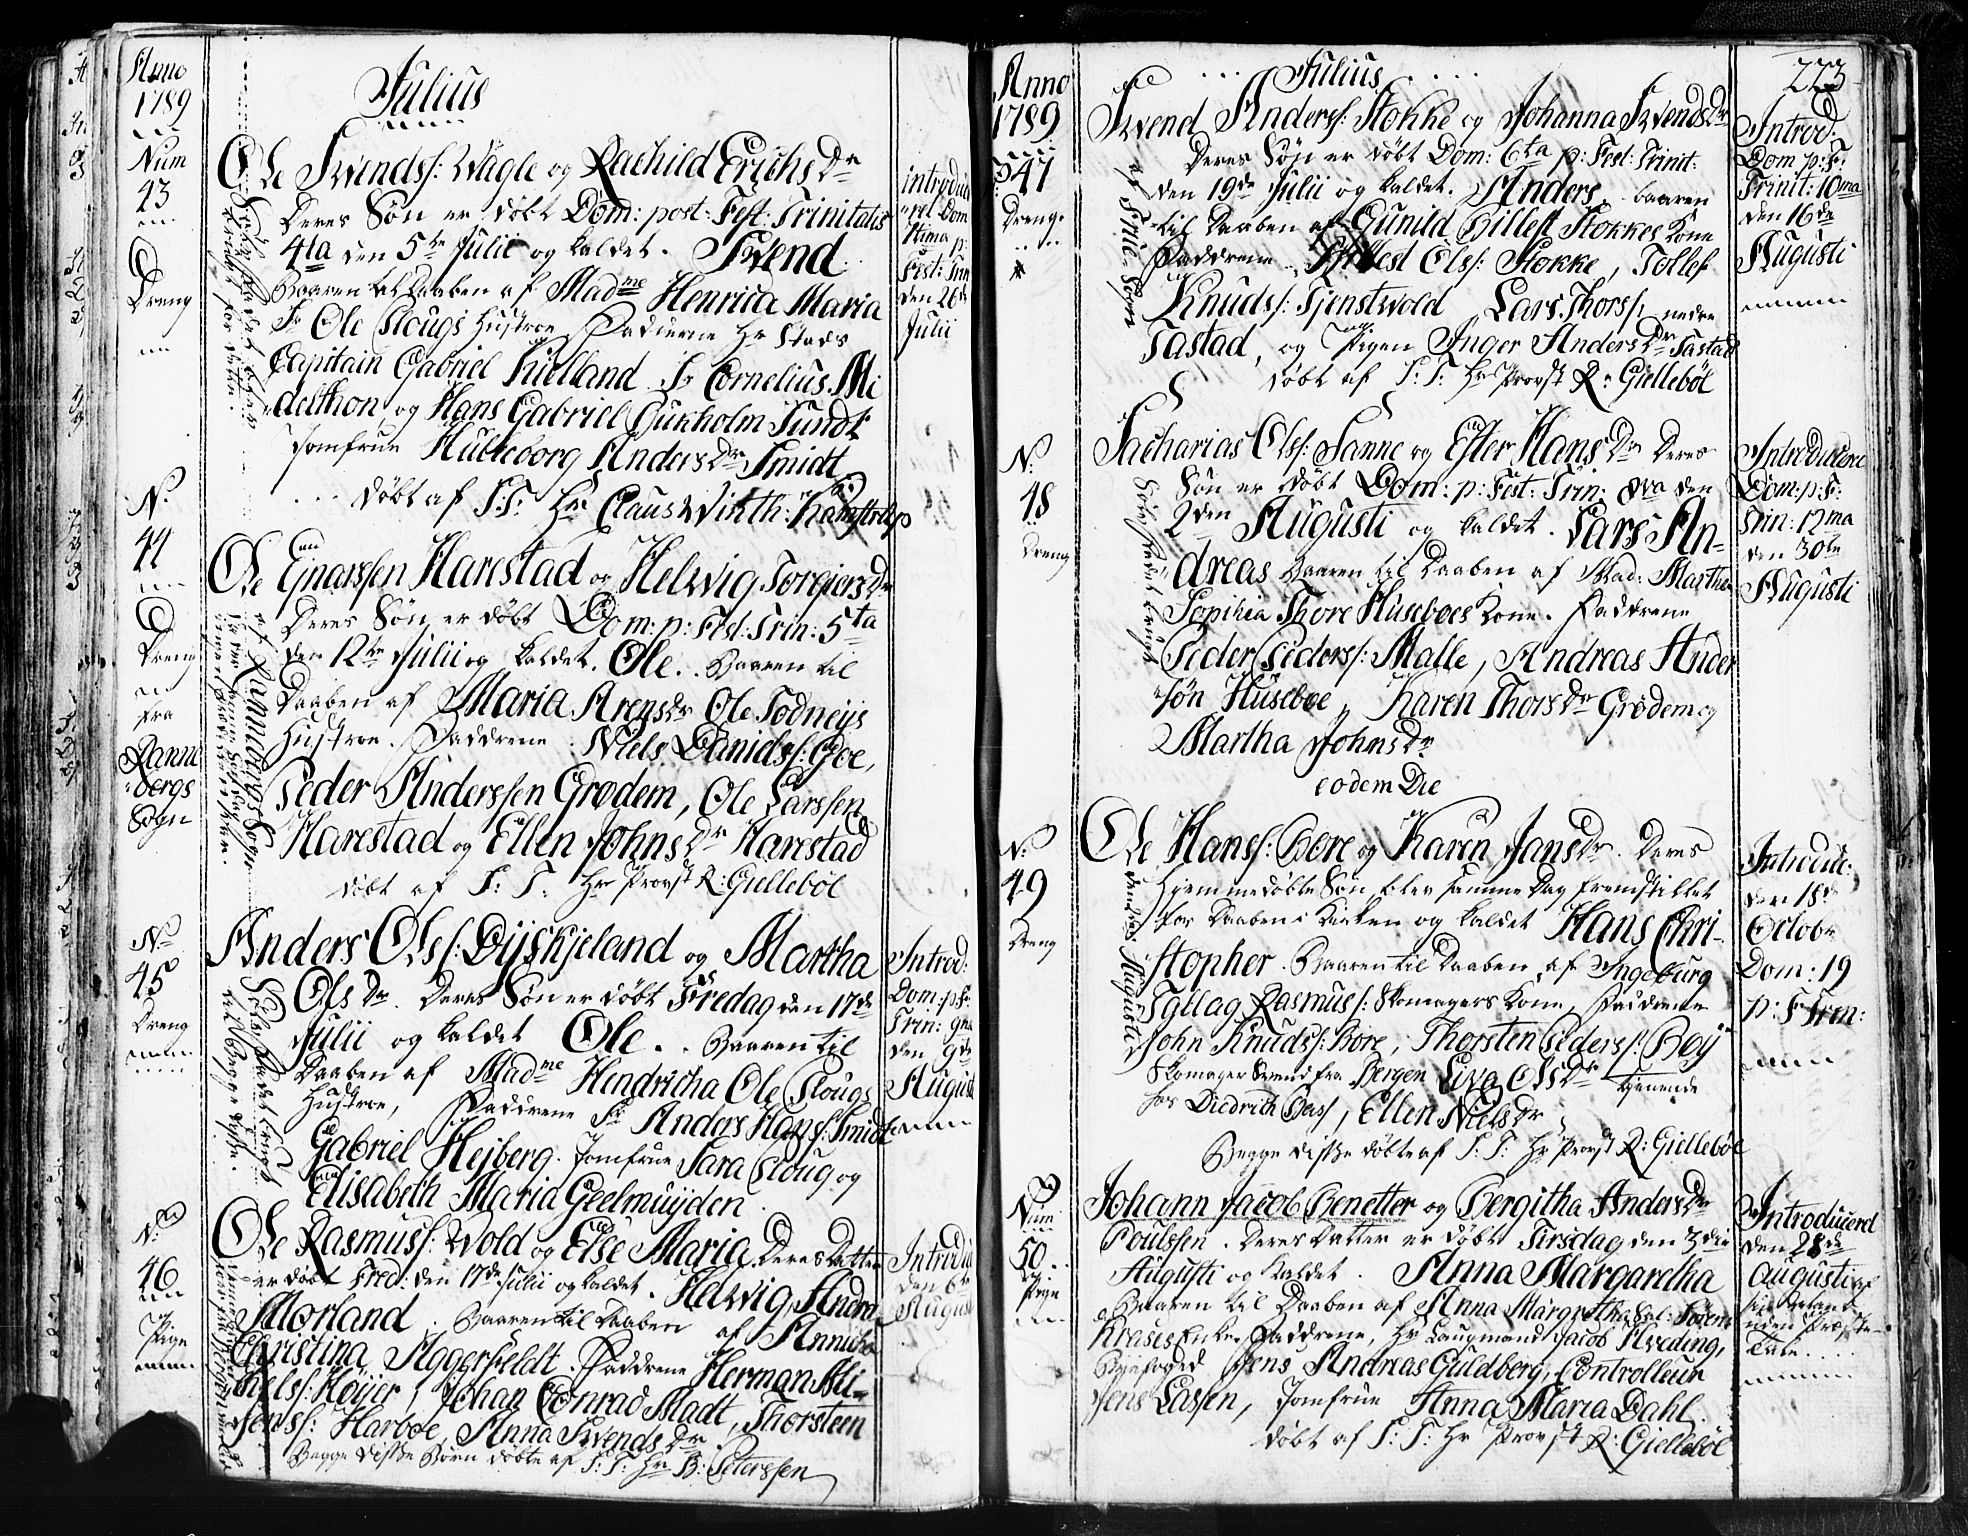 Anno
1789
Julius
Num
43
Dreng
Ole Svends: Wagle og Rachild Erichs Dr
Deres Søn er døbt Dom: post: Fest: Trinitatis
4ta den 5te Julii og kaldet. Svend.
Baaren til Daaben af Madme Henrica Maria
Sr Ole Plougs Hustroe, Faddrerne Hr Stads
Capitain Gabriel Kielland Sr Cornelius Mi
delthon og Hans Gabriel Bukholm Sundt
Jomfrue Hulleborg Anders Dr Smidt
døbt af S: T: Hr Claus Wirth: Kamstrup
introduc
Dom
p:
Fest: Trin
den 26de
Julii
N.
44
Dreng
fra
Ranne
bergs
Sogn
Ole Ejnarssen Harestad og Helwig Torgiers Dr
Deres Søn er døbt Dom: p: Fest: Trin: 5ta
den 12te Julii og kaldet. Ole. Baaren til
Daaben af Maria Arens Dr Ole Todneys
Hustroe. Faddrene Niels Danids: Goe,
Peder Anderssen Grødem, Ole Larssen
Harestad og Ellen Johns Dr Harestad
døbt af S: T: Hr Provst R: Giellebøl
af Rannebergs Sogn
No
45
Dreng
Anders Ols: Byskjeland og Martha
Ols Dr. Deres Søn er døbt Fredag den 17de
Julii og kaldet Ole. Baaren til
Daaben af Madme Hendricha Ole Plougs
Hustroe, Faddrene Sr Anders Hans: Smidt
Gabriel Hejberg. Jomfrue Sara Ploug og
Elisabeth Maria Geelmuyden
Introd:
Dom: p: F:
Trin: 9na
den 9de
August
No
46
Pige
Ole Rasmuss: Wold og Else Maria. Deres Datter
er døbt Fred: den 17de Julii og kaldet. Helwig Andrea
Morland. Baaren til Daaben af Annicha
Christina Aggerfeldt. Faddrene Herman Mi-
chels: Høyer, Johan Conrad Madt, Thorsteen
Jenss: Harboe, Anna Svends Dr
Begge disse Børn døbte af S: T: Hr B: Peterssen
Introdu
den 6te
August
Anno
1789
Julius
223
47
Dreng
Svend Anders: Stokke og Johanna Svends Dr
Deres Søn er døbt Dom: 6ta p: Fest: Trinit:
den 19de Julii og kaldet. Anders. baaren
til Daaben af Gunild Stokkes Kone
Faddrene Ols: Stokke, Tollef
Knuds: Tjenstwold Lars Thors: nedre
Tastad, og Pigen Inger Anders Dr Tastad
døbt af S: T: Hr Provst R: Giellebøl
af Frue Sogn
Introd:
Dom p: F:
Trinit: 10ma
den 16de
Augusti
N:
48
Dreng
Sacharias Ols: Sanne og Ester Hans Dr Deres
Søn er døbt Dom: p: Fest: Trin: 8va den
2den Augusti og kaldet. Lars An-
dreas Baaren til Daaben af Mad: Martha
Sophia Thore Huseboes Kone. Faddrene
Peder Peders: Malle, Andreas Ander
søn Huseboe, Karen Thors Dr Grødem og
Martha Johns Dr
eodem Die
Introduceret
Dom: p: F:
Trin: 12ma
den 30te
Augusti
N:
49
Dreng
Ole Hans: Bore og Karen Jans Dr. Deres
Hjemmedøbte Søn blev samme Dag fremstillet
for Daaben i Kirken og kaldet Hans Chri-
stopher. Baaren til Daaben af Ingeburg
Rasmus: Skomagers Kone, Faddrene
John Knuds: Bore, Thorsten Peders: Bøy
Skomager Svend fra Bergen Siva Ols Dr tienende
hos Diedrich Bass, Ellen Niels Dr
Begge disse døbte af S: T: Hr Provst R: Giellebøl
Introduc:
den 18de
Octobr
Dom: 19
p: F Trin:
Num
50
Pige
Johann Jacob Benetter og Bergitha Anders Dr
Poulssen. Deres Datter er døbt Tirsdag den 3die
Augusti og kaldet. Anna Margaretha
Baaren til Daaben af Anna Margretha Sal: Søren
Krases Enke. Faddrene, Hr Laugmand Jacob Arveding,
Byefoged Jens Andreas Guldberg, Controlleur
Jens Lassen, Jomfrue Anna Maria Dahl.
døbt af S: T: Hr Provst R: Giellebøl
Introduceret
den 28de
Augusti af
uden Præste
Tale.